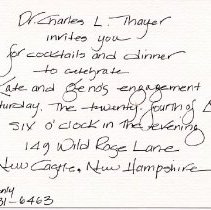 Dr. Charles L. Thayer
invites you
for cocktails and dinner
to celebrate
Kate and Ben's engagement
Saturday. The twenty-fourth of
six o'clock in the evening
149 Wild Rose Lane
New Castle, New Hampshire
only
31-6463